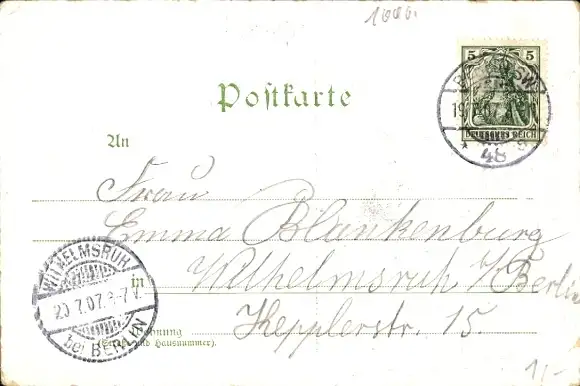 1000.
5 5
DEUTSCHES REICH
BERLIN SW
48 a
Postkarte
An
Frau
Emma Blankenburg
Wilhelmsruh b/Berlin
Kepplerstr. 15.
in
Wohnung
(Straße und Hausnummer.)
WILHELMSRUH
20.7.07.
bei BERLIN
1,-